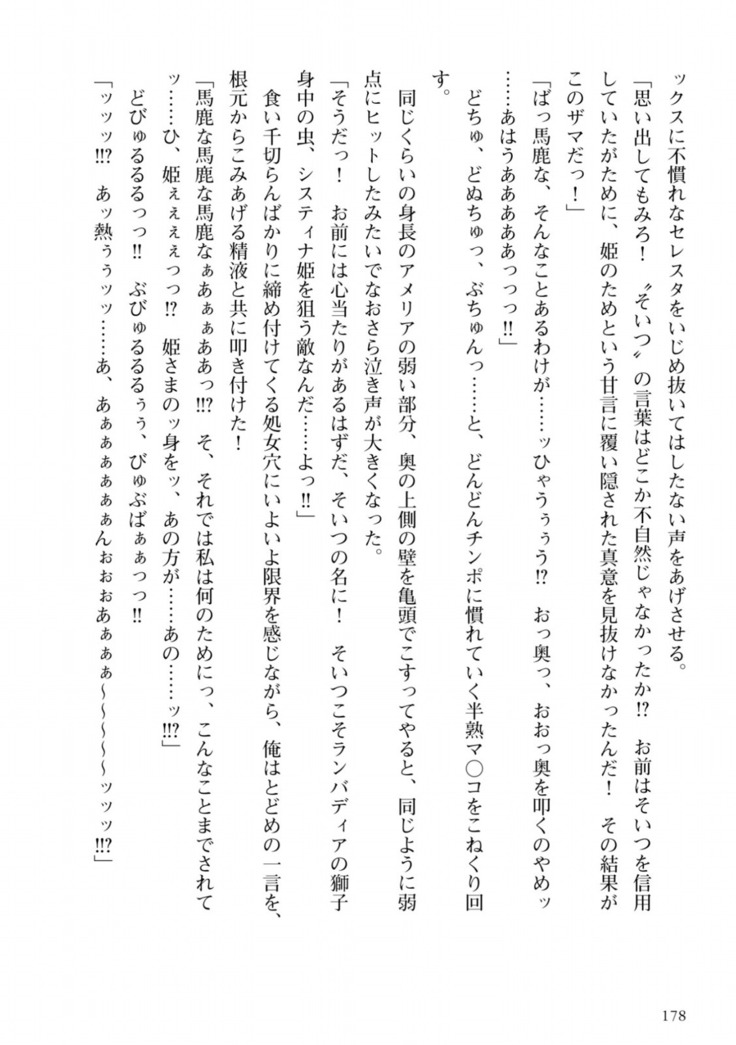 ックスに不慣れなセレスタをいじめ抜いてはしたない声をあげさせる。
「思い出してもみろ！　〝そいつ〟の言葉はどこか不自然じゃなかったか!?　お前はそいつを信用
していたがために、姫のためという甘言に覆い隠された真意を見抜けなかったんだ！　その結果が
このザマだっ！」
「ばっ馬鹿な、そんなことあるわけが……ッひゃうぅぅう!?　おっ奥っ、おおっ奥を叩くのやめッ
……あはうあああああっっっ!!」
　どちゅ、どぬちゅっ、ぶちゅんっ……と、どんどんチンポに慣れていく半熟マ〇コをこねくり回
す。
　同じくらいの身長のアメリアの弱い部分、奥の上側の壁を亀頭でこすってやると、同じように弱
点にヒットしたみたいでなおさら泣き声が大きくなった。
「そうだっ！　お前には心当たりがあるはずだ、そいつの名に！　そいつこそランバディアの獅子
身中の虫、システィナ姫を狙う敵なんだ……よっ!!」
　食い千切らんばかりに締め付けてくる処女穴にいよいよ限界を感じながら、俺はとどめの一言を、
根元からこみあげる精液と共に叩き付けた！
「馬鹿な馬鹿な馬鹿なぁあぁぁああっ!!?　そ、それでは私は何のためにっ、こんなことまでされて
ッ……ひ、姫ぇぇぇぇっっ!?　姫さまのッ身をッ、あの方が……あの……ッ!!?」
　どびゅるるるっっ!!　ぶびゅるるるぅぅ、びゅぶばぁぁっっ!!
「ッッッ!!?　あッ熱ぅぅッッ……あ、あぁぁぁぁぁぁんぉぉぉあぁぁぁ～～～～～ッッッ!!?」
178